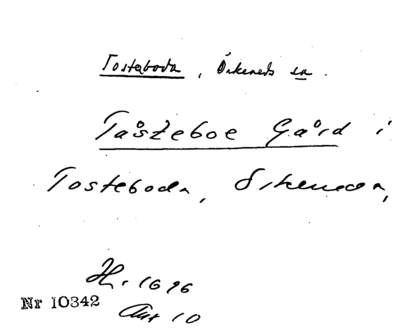 Tosteboda, Örkeneds sn.
Tåsteboe Gård i
Tosteboda, Örkeneds,
1696
Nr 10342
10